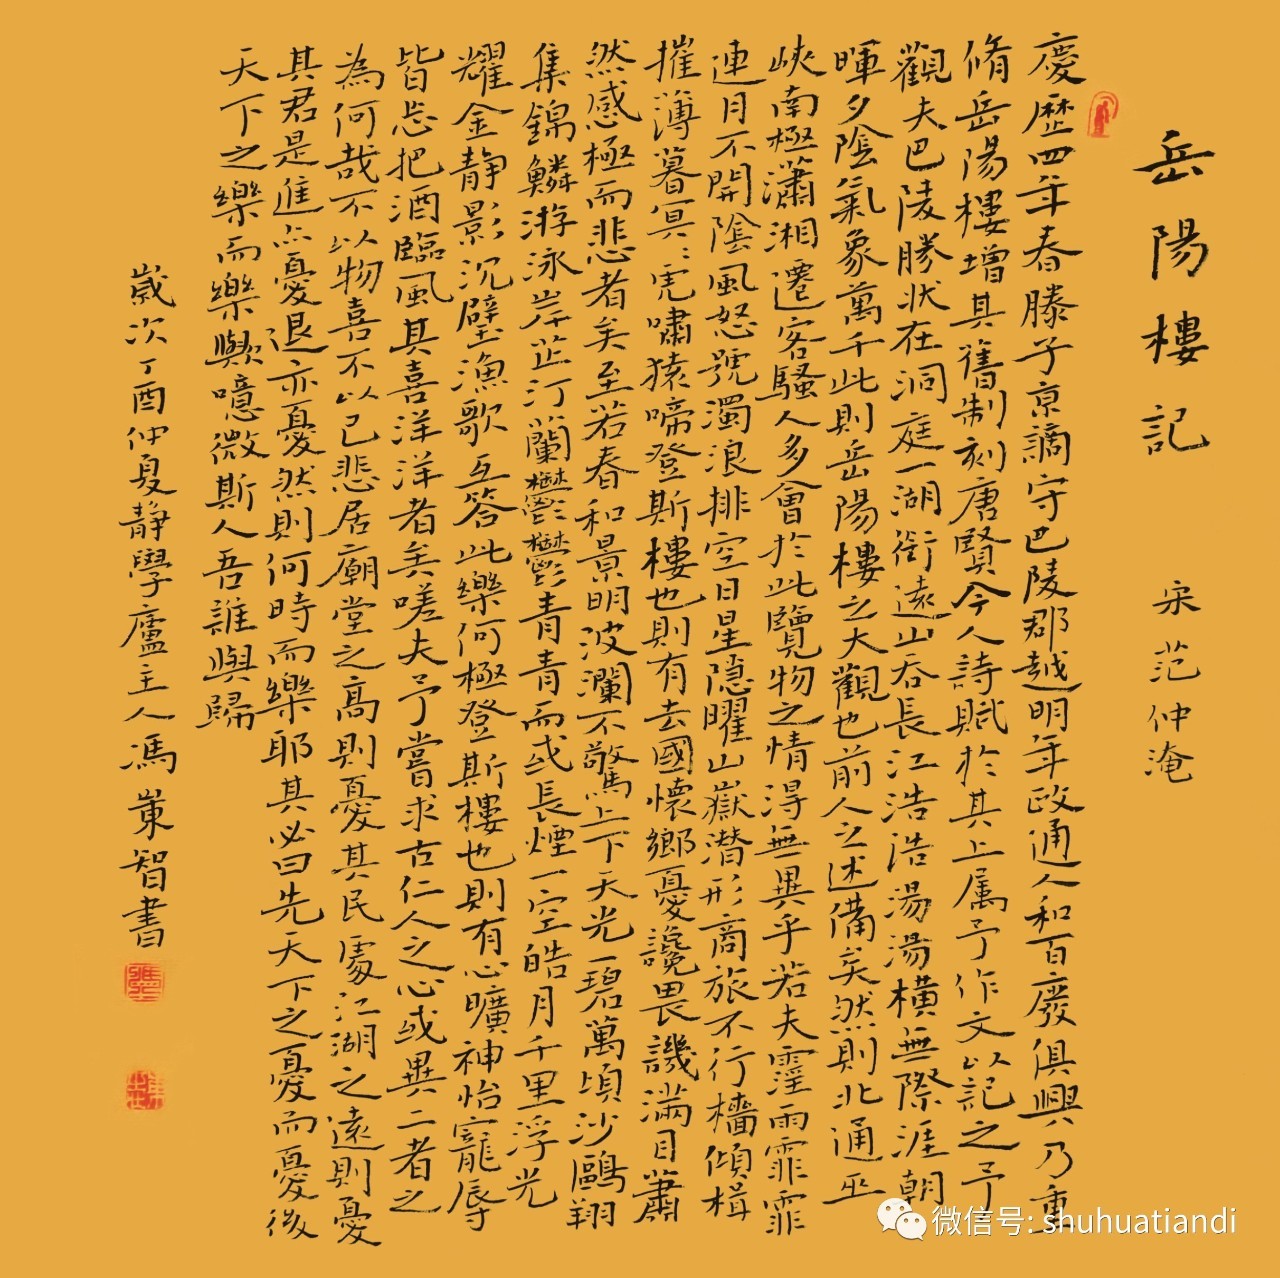 岳陽樓記 宋 范仲淹
慶歷四年春滕子京謫守巴陵郡越明年政通人和百廢俱興乃重
脩岳陽樓增其舊制刻唐賢今人詩賦於其上属予作文以記之予
觀夫巴陵勝状在洞庭一湖銜遠山吞長江浩浩湯湯橫無際涯朝
暉夕陰氣象萬千此則岳陽樓之大觀也前人之述備矣然則北通巫
峽南極瀟湘遷客騷人多會於此覽物之情得無異乎若夫霪雨霏霏
連月不開陰風怒號濁浪排空日星隱曜山嶽潜形商旅不行檣傾楫
摧薄暮冥冥虎嘯猿啼登斯樓也則有去國懷鄉憂讒畏譏滿目蕭
然感極而悲者矣至若春和景明波瀾不驚上下天光一碧萬頃沙鷗翔
集錦鱗游泳岸芷汀蘭鬱鬱青青而或長煙一空皓月千里浮光
耀金静影沉璧漁歌互答此樂何極登斯樓也則有心曠神怡寵辱
皆忘把酒臨風其喜洋洋者矣嗟夫予嘗求古仁人之心或異二者之
為何哉不以物喜不以己悲居廟堂之高則憂其民處江湖之遠則憂
其君是進亦憂退亦憂然則何時而樂耶其必曰先天下之憂而憂後
天下之樂而樂歟噫微斯人吾誰與歸
歲次丁酉仲夏静學廬主人馮智書
微信号: shuhuatiandi